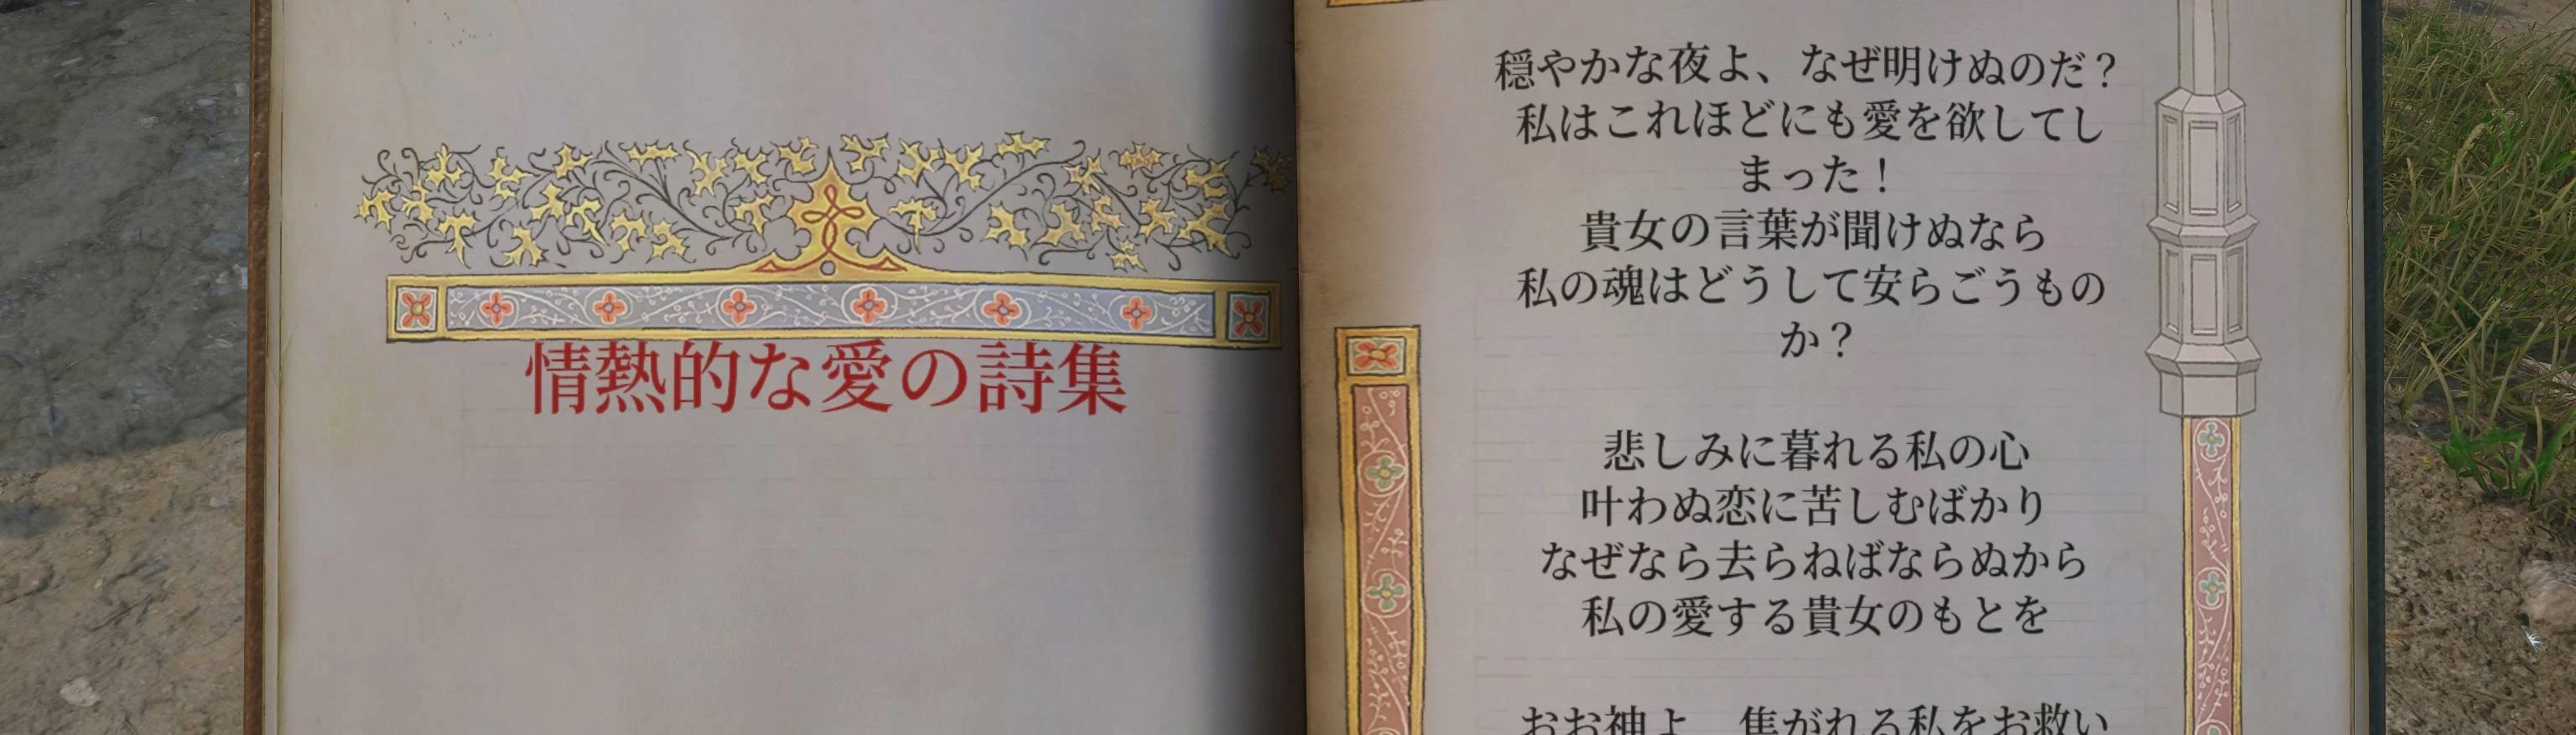 情熱的な愛の詩集
穏やかな夜よ、なぜ明けぬのだ？
私はこれほどにも愛を欲してし
まった！
貴女の言葉が聞けぬなら
私の魂はどうして安らごうもの
か？
悲しみに暮れる私の心
叶わぬ恋に苦しむばかり
なぜなら去らねばならぬから
私の愛する貴女のもとを
おお神よ、焦がれる私をお救い